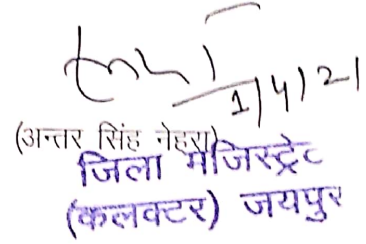 1/4/21
(अन्तर सिंह नेहरा)
जिला मजिस्ट्रेट
(कलक्टर) जयपुर